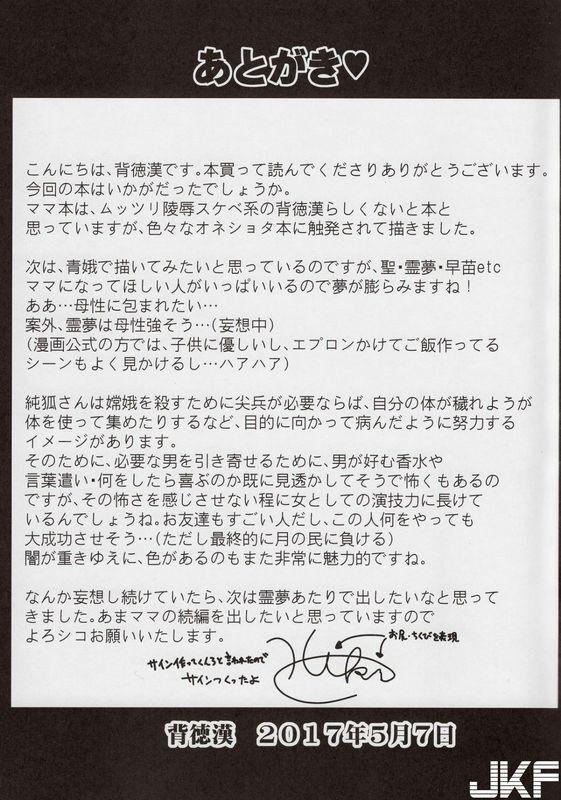 あとがき♡
こんにちは、背徳漢です。本買って読んでくださりありがとうございます。
今回の本はいかがだったでしょうか。
ママ本は、ムッツリ陵辱スケベ系の背徳漢らしくないと本と
思っていますが、色々なオネショタ本に触発されて描きました。
次は、青娥で描いてみたいと思っているのですが、聖・霊夢・早苗etc
ママになってほしい人がいっぱいいるので夢が膨らみますね！
ああ…母性に包まれたい…
案外、霊夢は母性強そう…(妄想中)
(漫画公式の方では、子供に優しいし、エプロンかけてご飯作ってる
シーンもよく見かけるし…ハアハア)
純狐さんは嫦娥を殺すために尖兵が必要ならば、自分の体が穢れようが
体を使って集めたりするなど、目的に向かって病んだように努力する
イメージがあります。
そのために、必要な男を引き寄せるために、男が好む香水や
言葉遣い・何をしたら喜ぶのか既に見透かしてそうで怖くもあるの
ですが、その怖さを感じさせない程に女としての演技力に長けて
いるんでしょうね。お友達もすごい人だし、この人何をやっても
大成功させそう…(ただし最終的に月の民に負ける)
闇が重きゆえに、色があるのもまた非常に魅力的ですね。
なんか妄想し続けていたら、次は霊夢あたりで出したいなと思って
きました。あまママの続編を出したいと思っていますので
よろシコお願いいたします。
お尻・ちくびを表現
サイン作ってくんろと言われたので
サインつくったよ
背徳漢　2017年5月7日
JKF